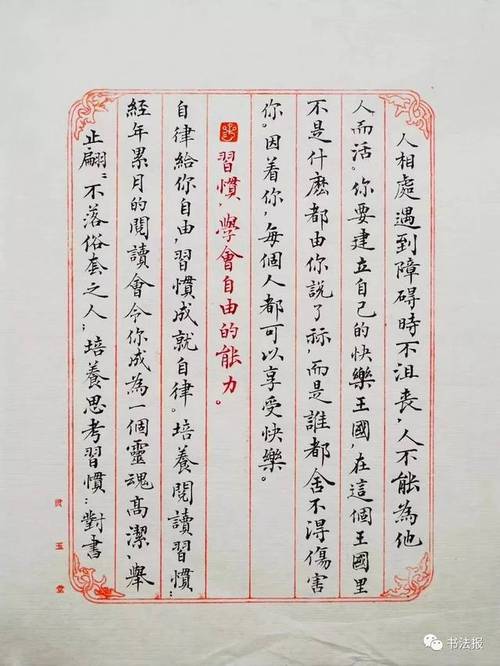 人相處遇到障碍時不沮喪,人不能為他
人而活。你要建立自己的快樂王國,在這個王國里
不是什麽都由你說了祘,而是誰都舍不得傷害
你。因着你,每個人都可以享受快樂。
習慣,學會自由的能力。
自律給你自由,習慣成就自律。培養閱讀習慣:
經年累月的閱讀會令你成為一個靈魂高潔、舉
止翩〻不落俗套之人;培養思考習慣:對書
玉堂
书法报